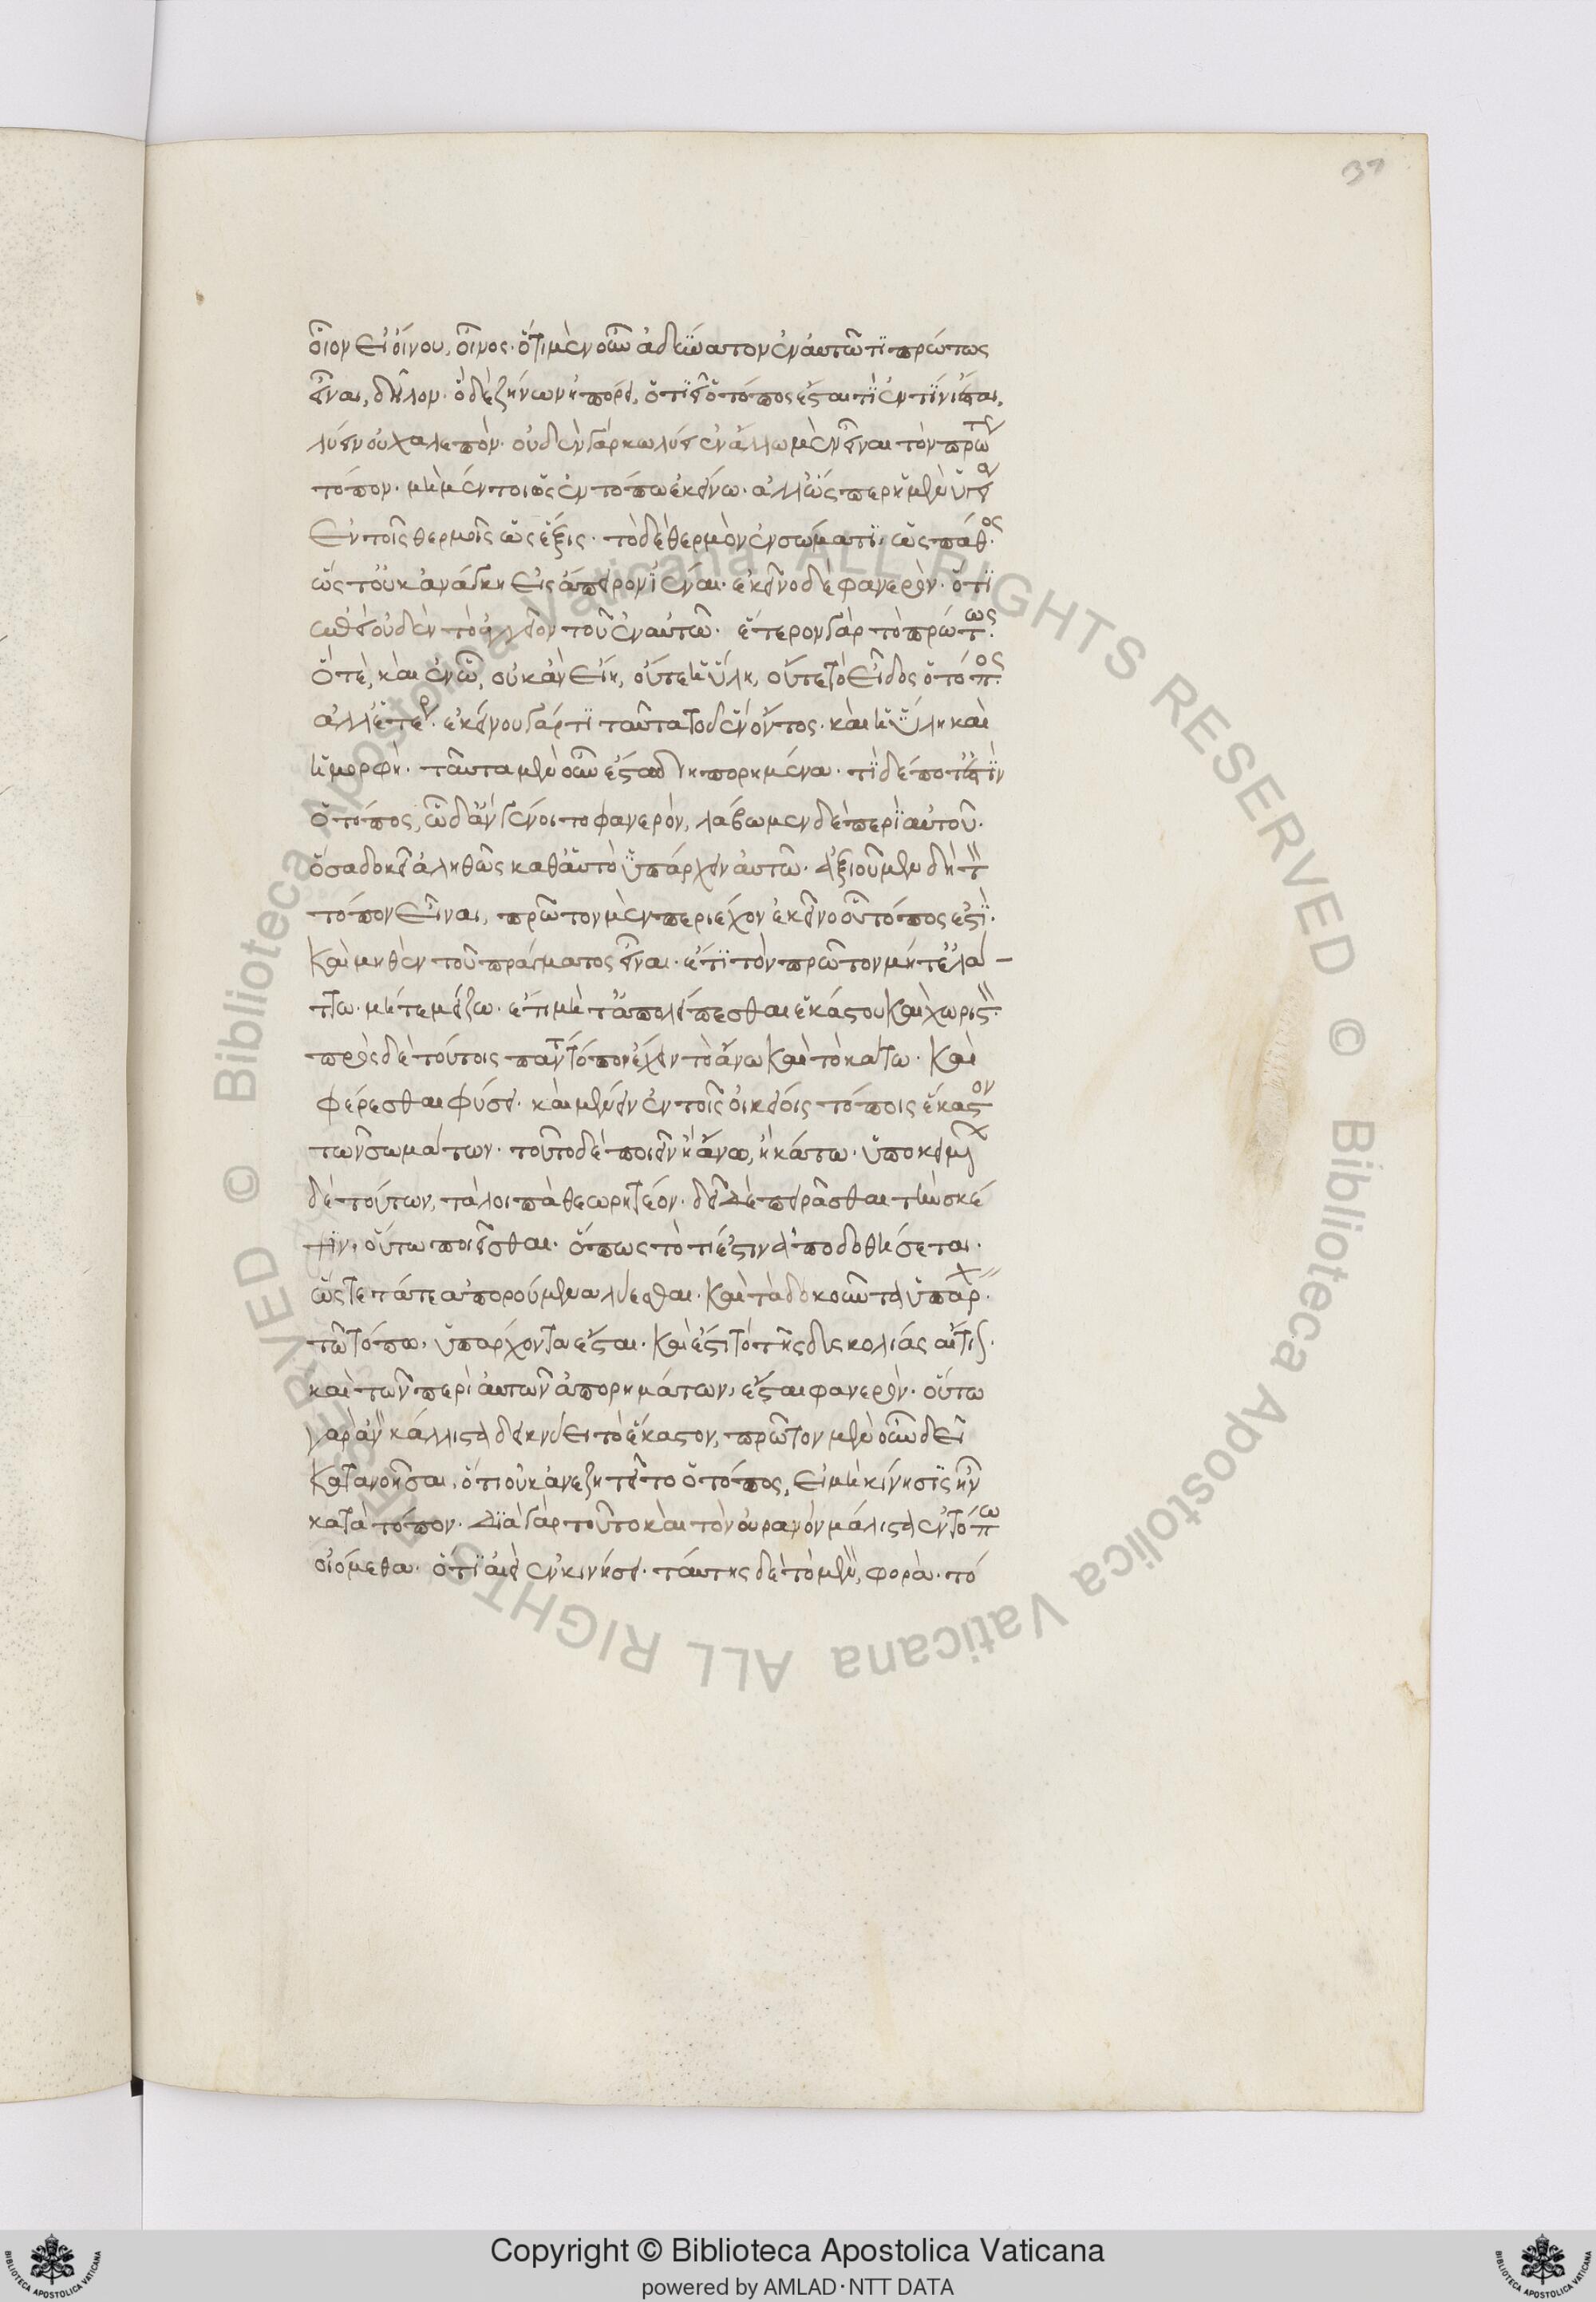 37
οἷον εἰ οἴνου, οἶνος. ὅτι μὲν οὖν ἀδύνατον ἐν αὑτῶ τϊ πρώτως
εἶναι, δῆλον. ὃ δὲ ζήνων ἠπόρει, ὅτι εἰ ὁ τόπος ἔσται τϊ ἐν τίνι ἔσται,
λύειν οὐ χαλεπὸν. οὐδὲν γὰρ κωλύει ἐν ἄλλω μὲν εἶναι τὸν πρῶτον
τόπον. μὴ μέντοι ὡς ἐν τόπω ἐκείνω. ἀλλ' ὥσπερ ἡ μὲν ὑγεία
ἐν τοῖς θερμοῖς ὡς ἕξις. τὸ δὲ θερμὸν ἐν σώματϊ, ὡς πάθος.
ὥστ' οὐκ ἀνάγκη εἰς ἄπειρον ἰέναι. ἐκεῖνο δὲ φανερὸν. ὅτϊ
οὐδὲν τὸ ἀγγεῖον τοῦ ἐν αὐτῶ. ἕτερον γὰρ τὸ πρώτως
ὅ τὲ, καὶ ἐν ὧ, οὐκ ἂν εἴη, οὔτε ἡ ὕλη, οὔτε τὸ εἶδος ὁ τόπος.
ἀλλ' ἕτερον. ἐκείνου γάρ τϊ ταῦτα τοῦ ἐνόντος. καὶ ἡ ὕλη καὶ
ἡ μορφὴ. ταῦτα μὲν οὖν ἔστω διηπορημένα. τϊ δέ ποτ' ἐστϊν
ὁ τόπος, ὧδ' ἂν γένοιτο φανερὸν, λάβωμεν δὲ περὶ αὐτοῦ.
ὅσα δοκεῖ ἀληθῶς καθ' αὑτὸ ὑπάρχειν αὐτῶ. ἀξιοῦμεν δὴ τὸν
τόπον εἶναι, πρῶτον μὲν περιέχον ἐκεῖνο οὗ τόπος ἐστϊ.
καὶ μηθὲν τοῦ πράγματος εἶναι. ἔτϊ τὸν πρῶτον μήτ' ἐλά-
ττω. μήτε μείζω. ἔτι μὴ τ' ἀπολείπεσθαι ἑκάστου καὶ χωριστὸν.
πρὸς δὲ τούτοις πάντα τόπον ἔχειν τὸ ἄνω καὶ τὸ κάτω. καὶ
φέρεσθαι φύσει. καὶ μένειν ἐν τοῖς οἰκείοις τόποις ἕκαστον
τῶν σωμάτων. τοῦτο δὲ ποιεῖν ἢ ἄνω, ἢ κάτω. ὑποκειμένων
δὲ τούτων, τὰ λοιπὰ θεωρητέον. δεῖ δὲ πειρᾶσθαι τὴν σκέ
ψϊν, οὕτω ποιεῖσθαι. ὅπως τὸ τί ἐστιν ἀποδοθήσεται.
ὥστε τά τε ἀπορούμενα λύεσθαι. καὶ τὰ δοκοῦντα ὑπάρχειν.
τῶ τόπω, ὑπάρχοντα ἔσται. καὶ ἔτι τὸ τῆς δυσκολίας αἴτιον.
καὶ τῶν περὶ αὐτῶν ἀπορημάτων, ἔσται φανερὸν. οὕτω
γὰρ ἂν κάλλιστα δεικνύειτο ἕκαστον, πρῶτον μὲν οὖν δεῖ
κατανοῆσαι, ὅτι οὐκ ἂν ἐζητεῖτο ὁ τόπος, εἰ μὴ κίνησϊς ἦν
κατὰ τόπον. διὰ γὰρ τοῦτο καὶ τὸν οὐρανὸν μάλιστα ἐν τόπω
οἰόμεθα. ὅτϊ ἀεὶ ἐν κινήσει. ταύτης δὲ τὸ μὲν, φορὰ. τό
Copyright © Biblioteca Apostolica Vaticana
powered by AMLAD·NTT DATA